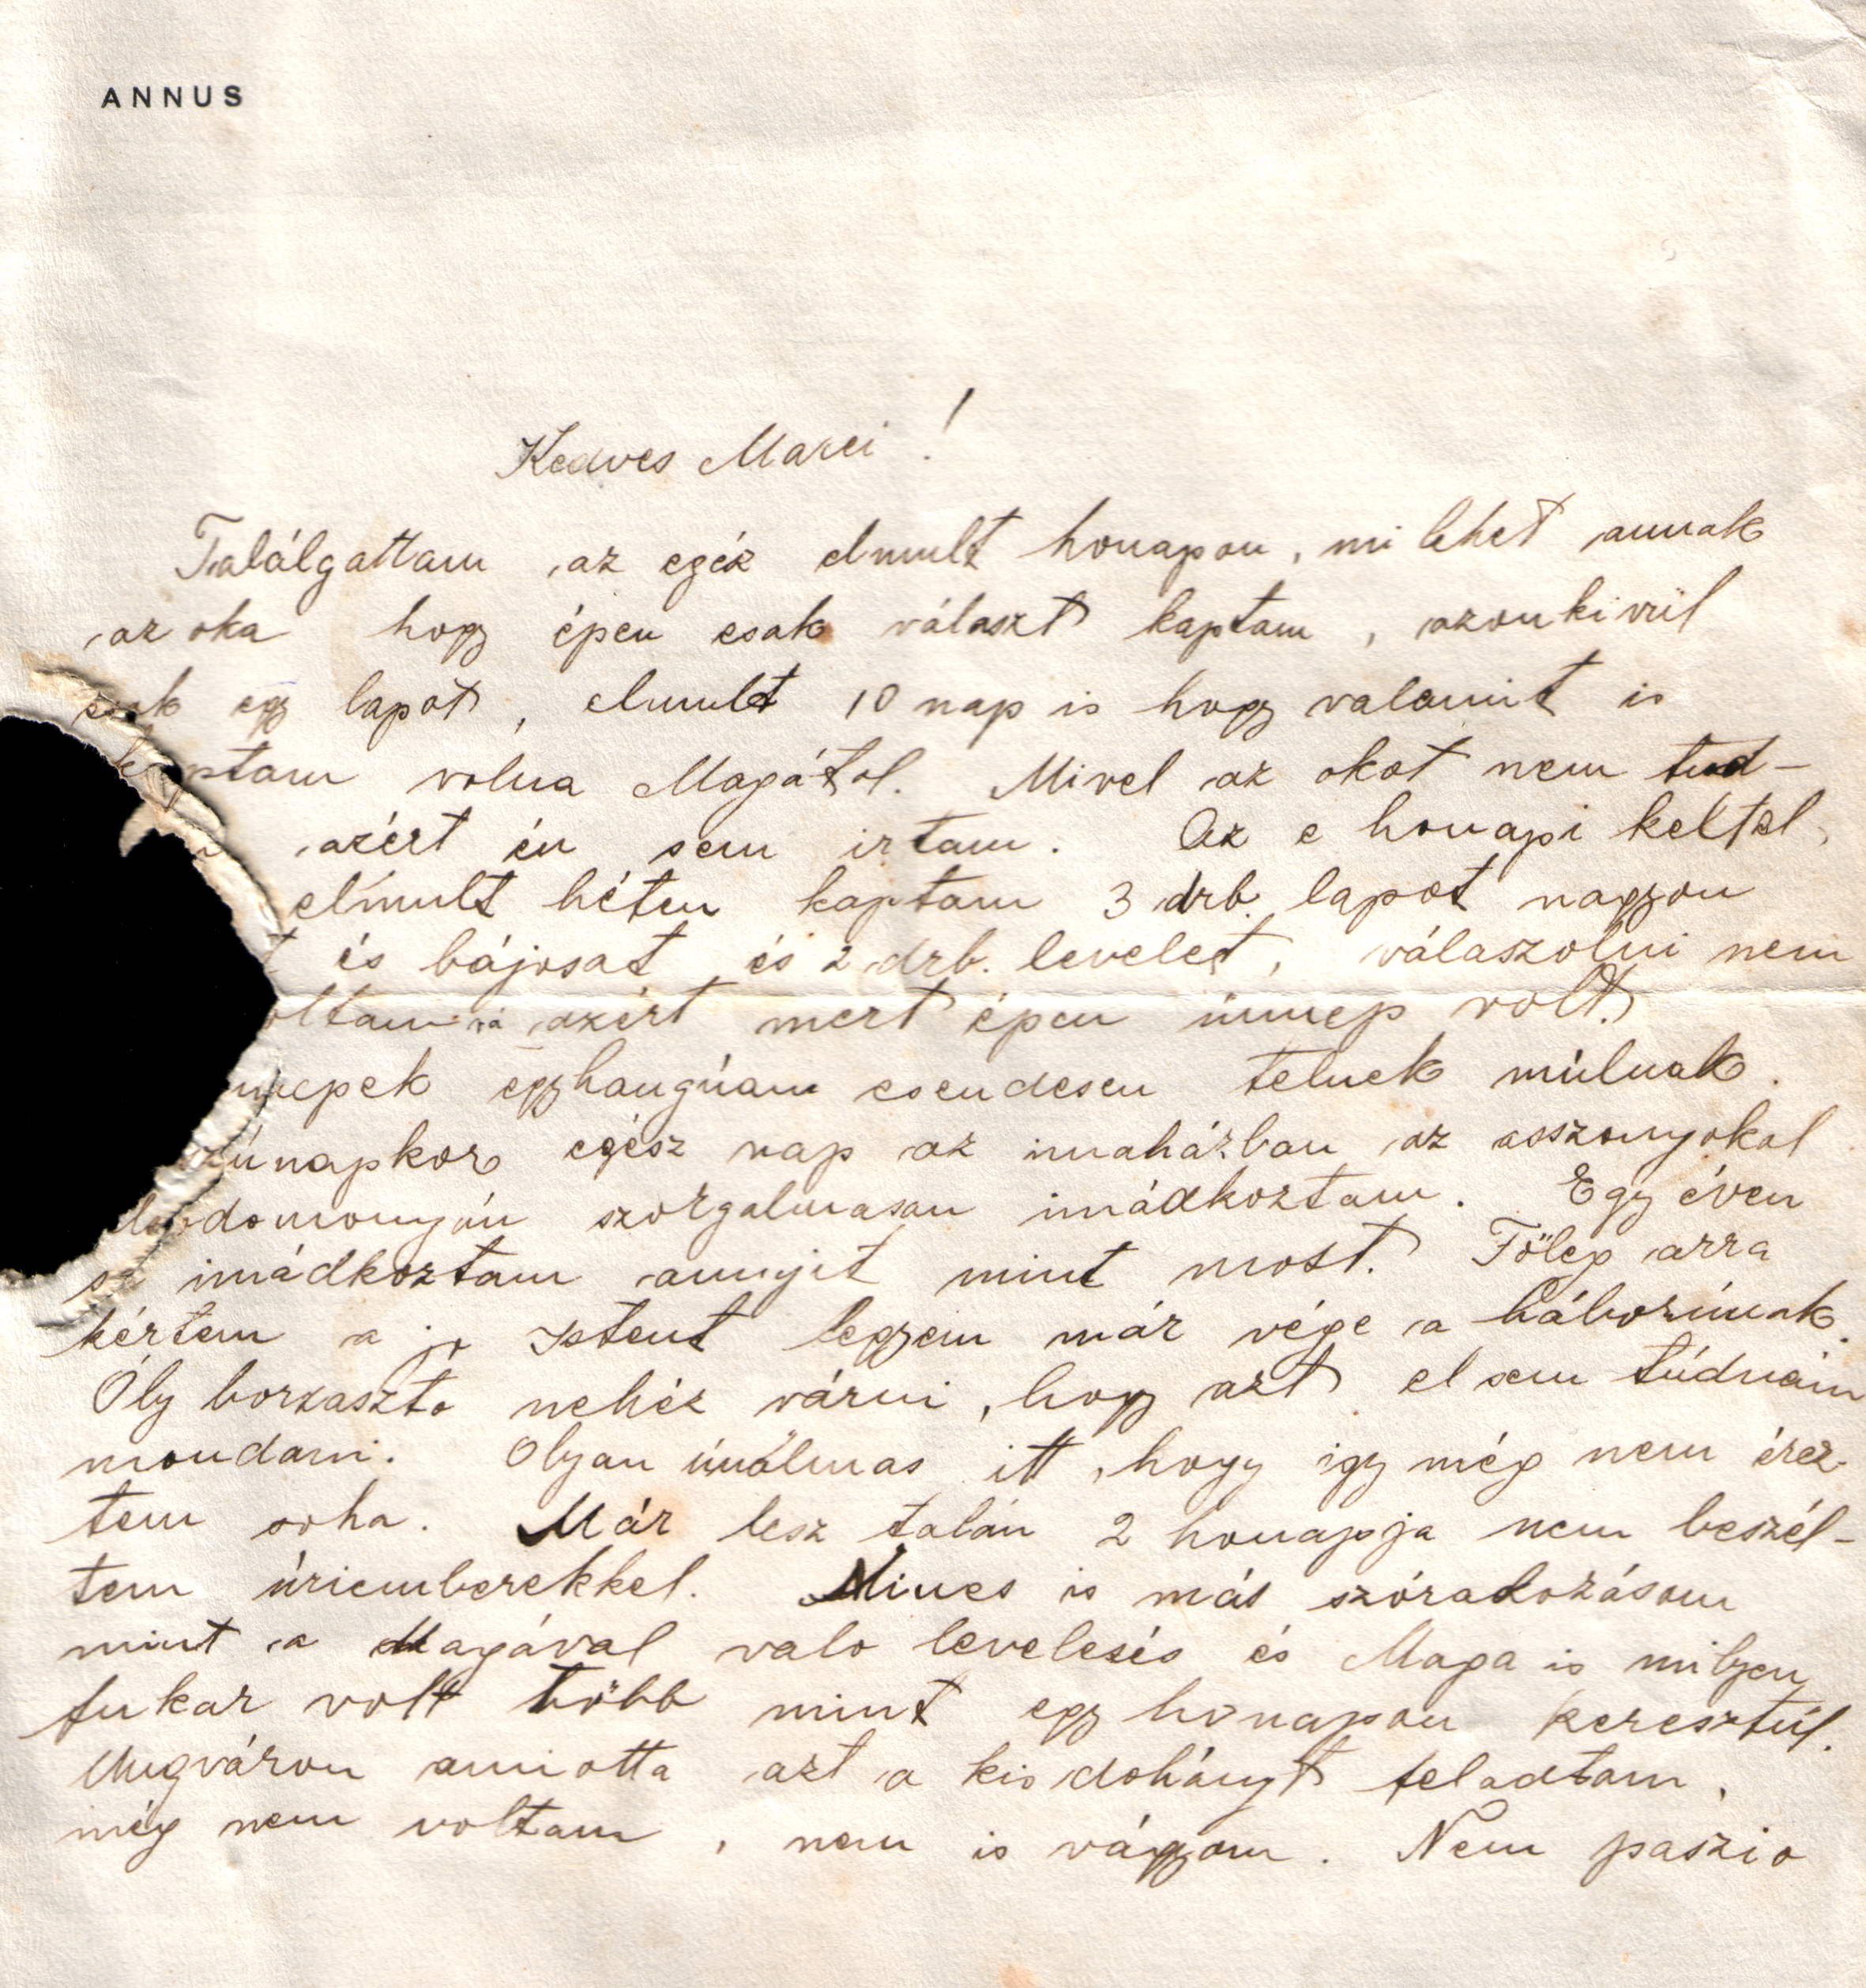 ANNUS
Kedves Marci!
Találgattam az egéz elmult honapon, mi lehet annak
az oka hogy épen csak választ kaptam, azonkivül
csak egy lapot, elmult 10 nap is hogy valamit is
kaptam volna Magától. Mivel az okot nem tud-
azért én sem irtam. Az e honapi keltel,
elmult héten kaptam 3 drb. lapot nagyon
és bájosat és 2 drb. levelet, válaszolni nem
azért mert épen ünnep volt.
egyhangúan csendesen telnek múlnak.
egész nap az imaházban az asszonyokal
szorgalmasan imádkoztam. Egy éven
imádkoztam annyit mint most. Főleg arra
kértem a jo Istent legyen már vége a háborúnak.
Oly borzaszto nehéz várni, hogy azt el sem túdnám
mondani. Olyan únalmas itt, hogy igy még nem érez-
tem soha. Már lesz talán 2 honapja nem beszél-
tem úriemberekkel. Nincs is más szórakozásom
mint a Magával valo levelezés és Maga is milyen
fukar volt több mint egy honapon keresztúl.
Ungváron amiotta azt a kis dohányt feladtam,
még nem voltam, nem is vágyom. Nem paszio